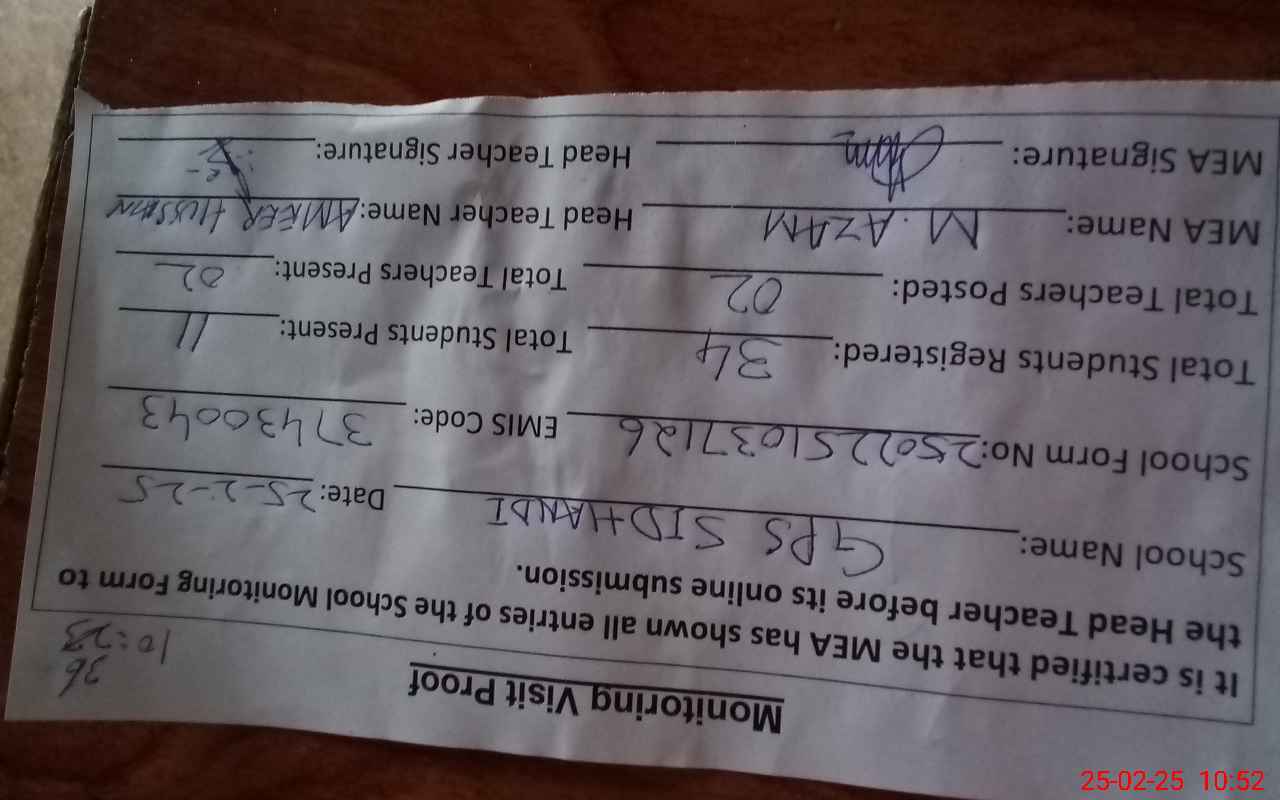 Monitoring Visit Proof
36
10:23
It is certified that the MEA has shown all entries of the School Monitoring Form to
the Head Teacher before its online submission.
School Name: GPS SIDHANDI Date: 25-2-25
School Form No: 2502251037126 EMIS Code: 37430043
Total Students Registered: 34 Total Students Present: 11
Total Teachers Posted: 02 Total Teachers Present: 02
MEA Name: M. AZAM Head Teacher Name: AMEER HUSSAIN
MEA Signature: Head Teacher Signature:
25-02-25 10:52